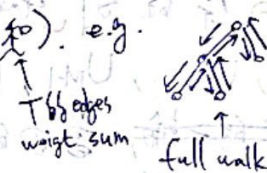 ). e.g.
edges
weigt sum
full walk